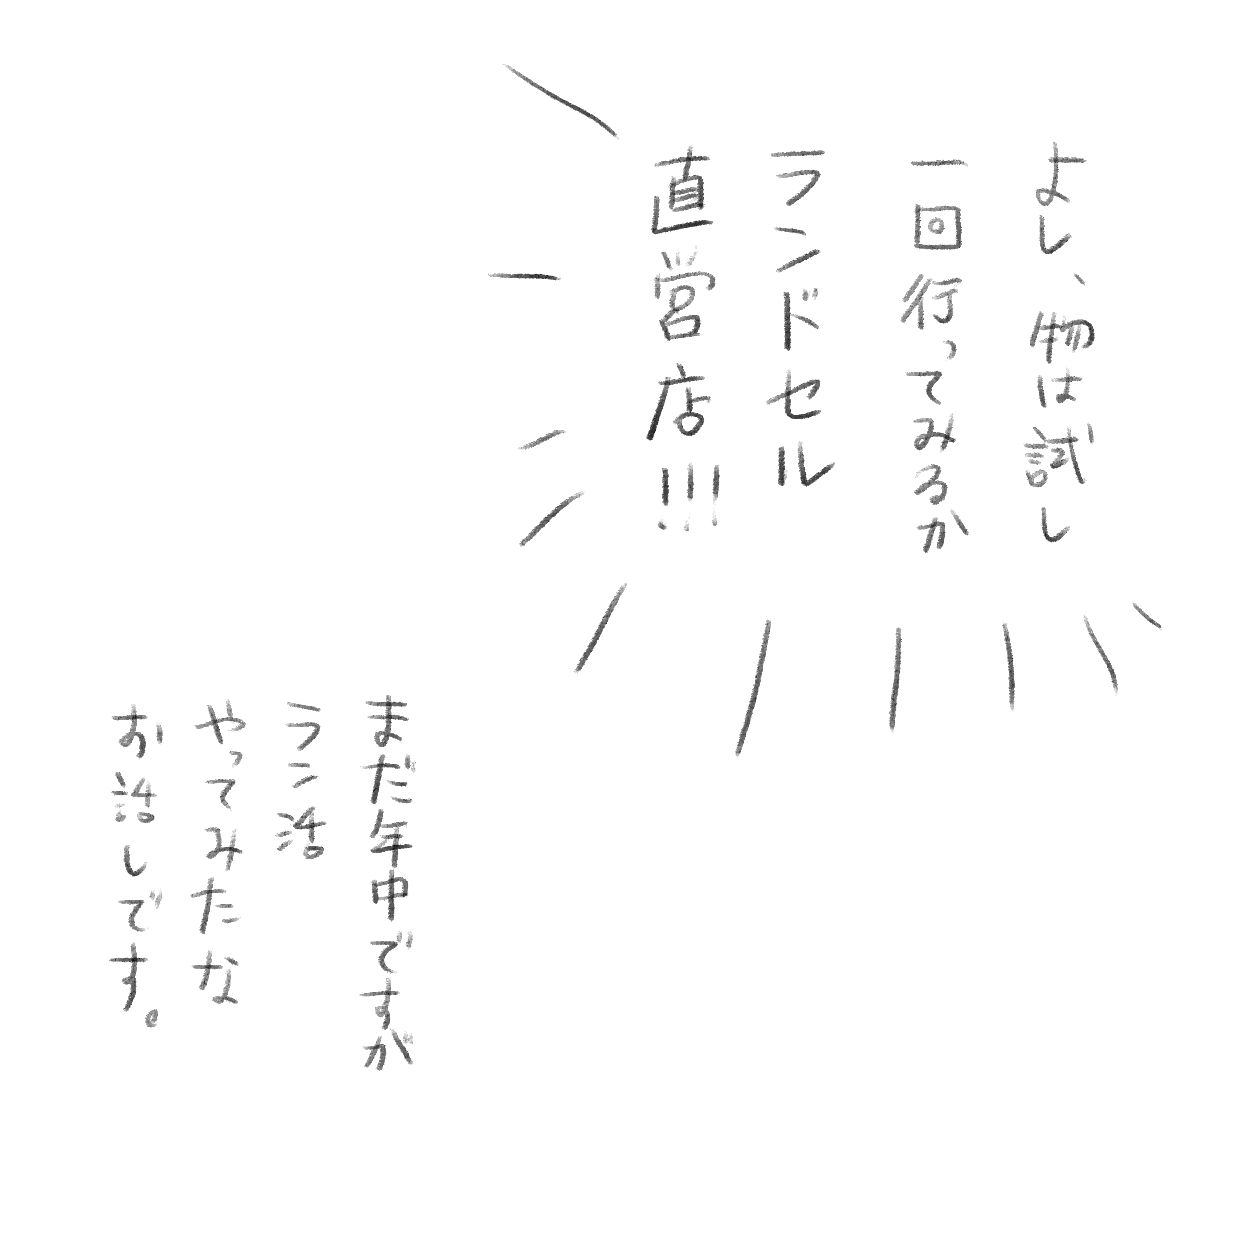 よし、物は試し
一回行ってみるか
ランドセル
直営店!!!
まだ年中ですが
ラン活
やってみたな
お話しです。